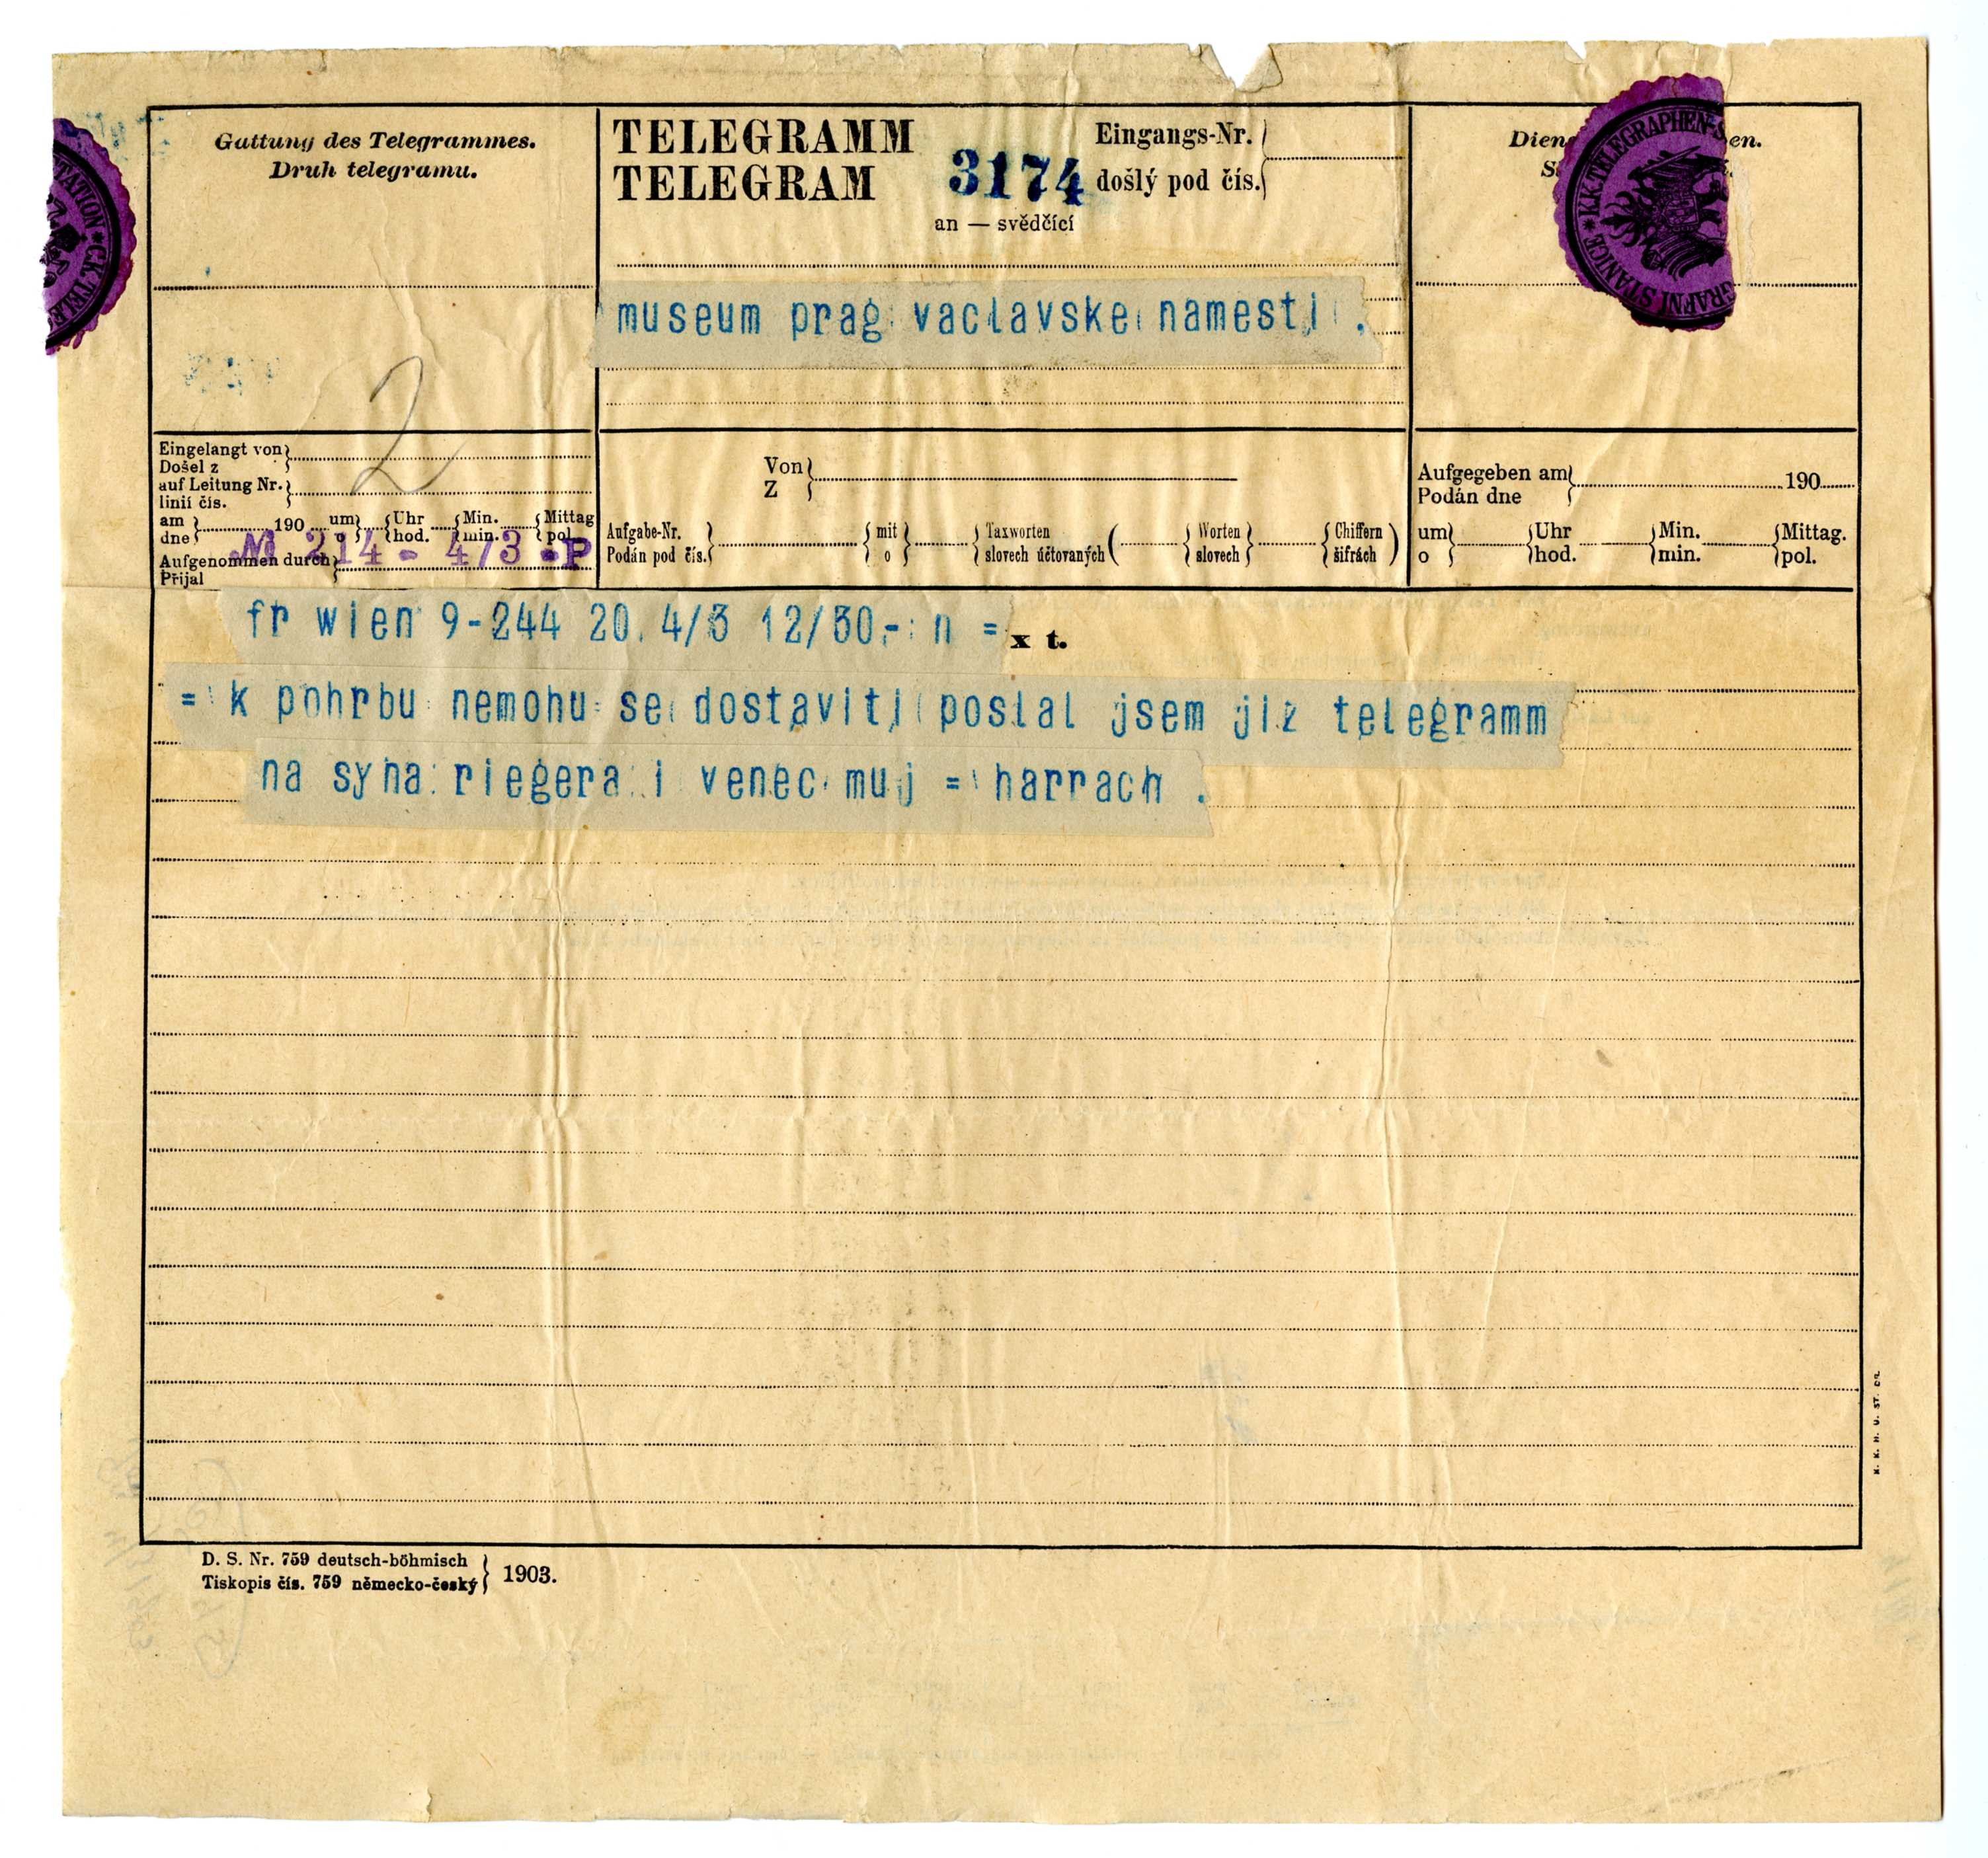 Gattung des Telegrammes.
Druh telegramu.
TELEGRAMM
TELEGRAM
3174
Eingangs-Nr.
došlý pod čís.
an — svědčící
museum prag vaclavske namesti .
K.K. TELEGRAPHEN-S
GRAFNÍ STANICE
TATION * C.K. TELE
2
Eingelangt von
Došel z
auf Leitung Nr.
linií čís.
am 190 um Uhr Min. Mittag
dne o hod. min. pol.
№ 214 - 4/3 - P
Aufgenommen durch
Přijal
Von
Z
Aufgabe-Nr. mit Taxworten ( Worten Chiffern )
Podán pod čís. o slovech účtovaných slovech šifrách
Aufgegeben am 190
Podán dne
um Uhr Min. Mittag.
o hod. min. pol.
fr wien 9-244 20. 4/3 12/30,- n = x t.
= k pohrbu nemohu se dostaviti poslal jsem jiz telegramm
na syna riegera i venec muj = harrach .
D. S. Nr. 759 deutsch-böhmisch
Tiskopis čís. 759 německo-český
1903.